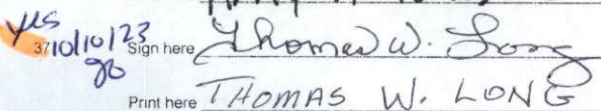 yes
37 10/10/23 Sign here Thomas W. Long
Print here THOMAS W. LONG